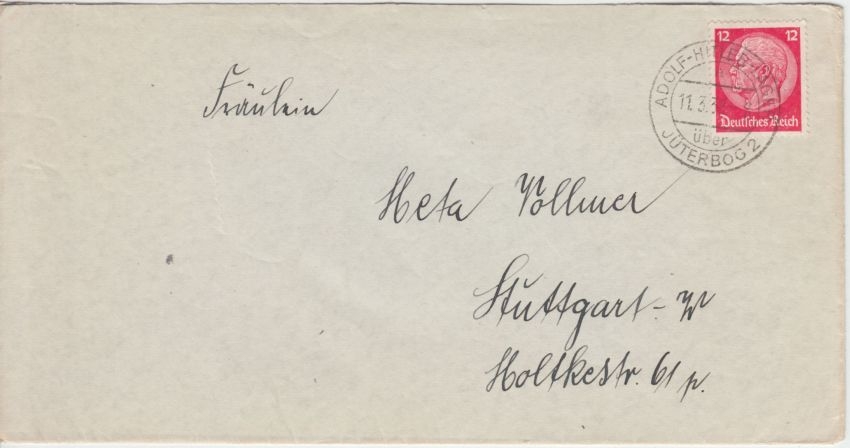 12 12
ADOLF-HITLER-LAGER
11.3.3
Deutsches Reich
über
JÜTERBOG 2
Fräulein
Meta Vollmer
Stuttgart-W
Moltkestr. 61 p.